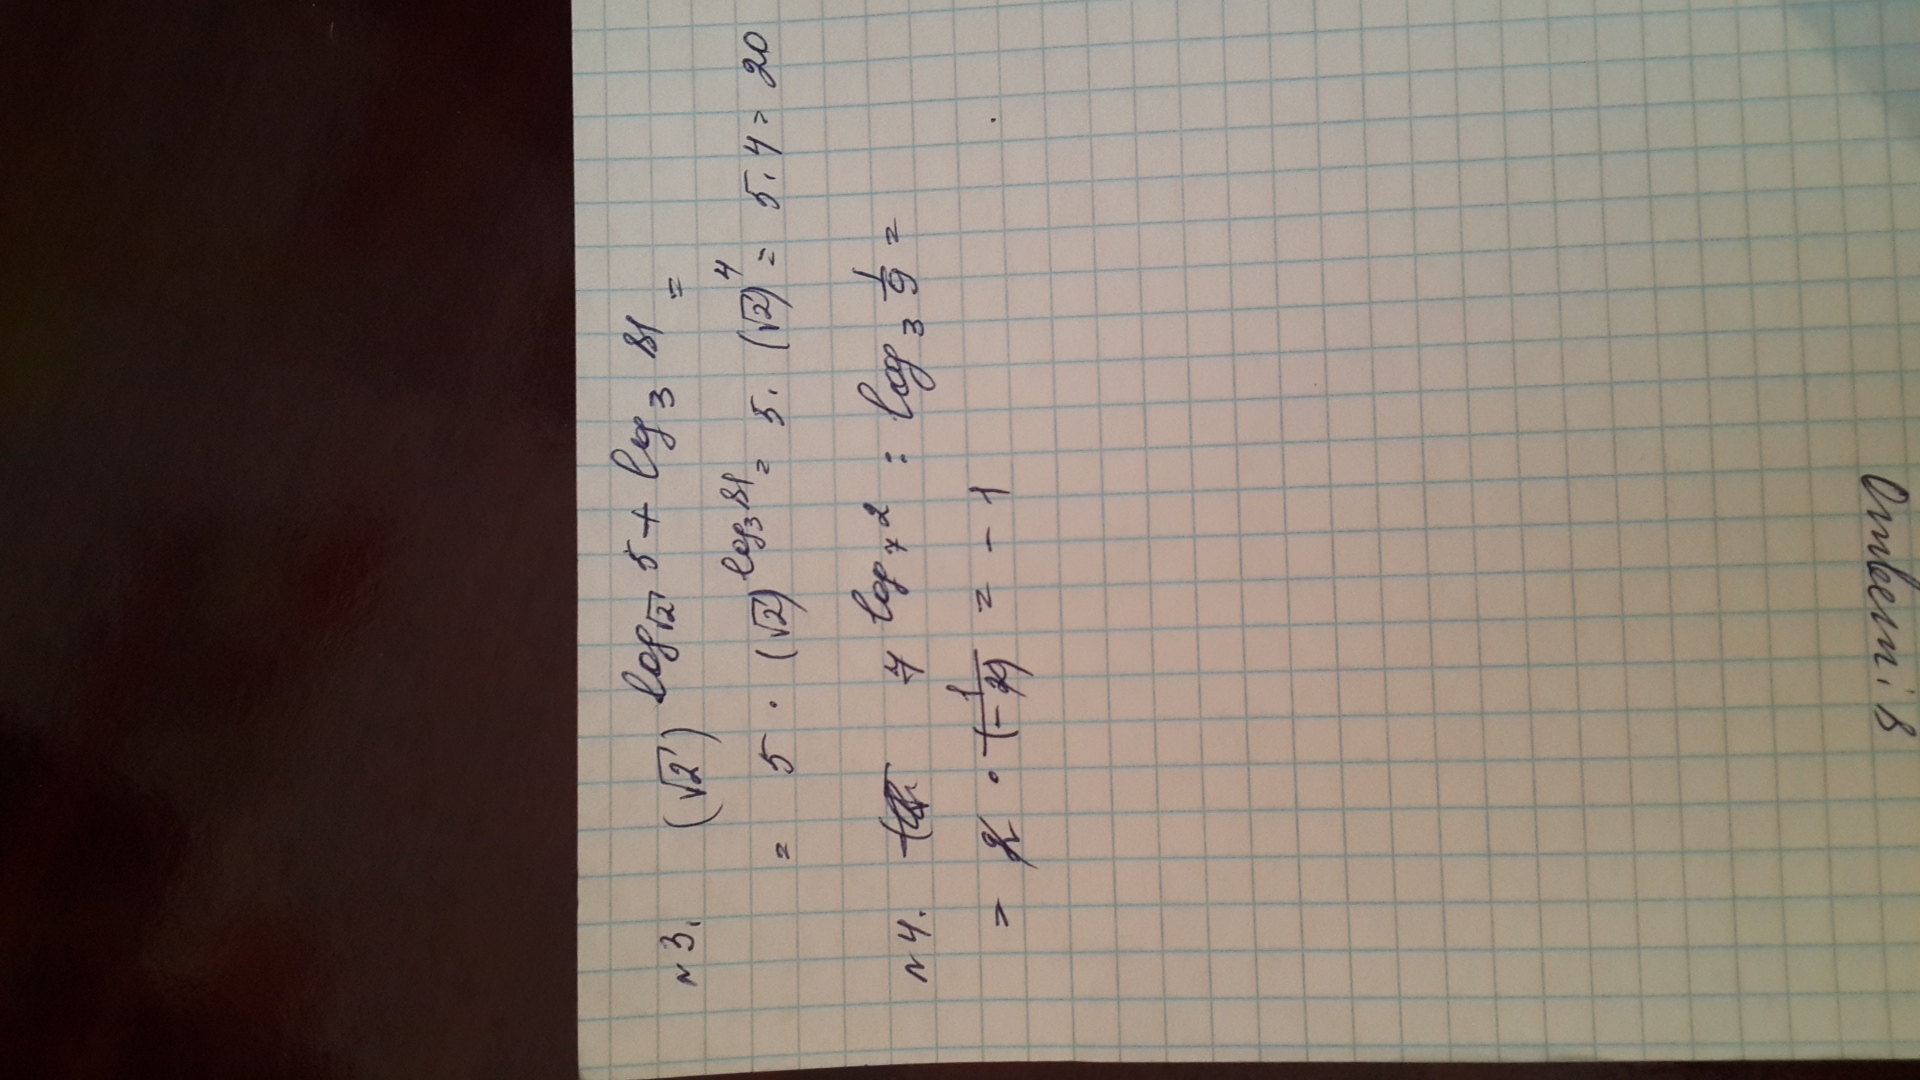 N3. (√2)^(log_√2 5 + log_3 81) =
= 5 · (√2)^(log_3 81) = 5 · (√2)^4 = 5 · 4 = 20
N4. 7^(log_7 2) : log_3 1/9 =
= 2 · (-1/2) = -1
Ответ: 8